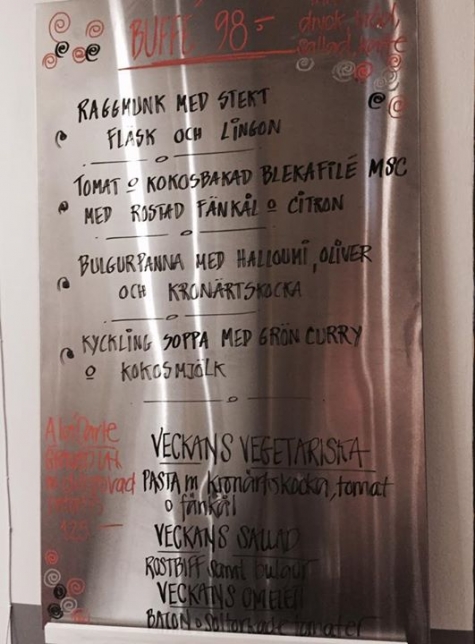 BUFFÉ 98:-
dryck, bröd,
sallad, kaffe
RAGGMUNK MED STEKT
FLÄSK OCH LINGON
TOMAT O KOKOSBAKAD BLEKAFILÉ MSC
MED ROSTAD FÄNKÅL O CITRON
BULGURPANNA MED HALLOUMI, OLIVER
OCH KRONÄRTSKOCKA
KYCKLING SOPPA MED GRÖN CURRY
O KOKOSMJÖLK
A la Carte
129:-
VECKANS VEGETARISKA
PASTA m kronärtskocka, tomat
o fänkål
VECKANS SALLAD
ROSTBIFF samt bulgur
VECKANS OMELETT
BACON o soltorkade tomater